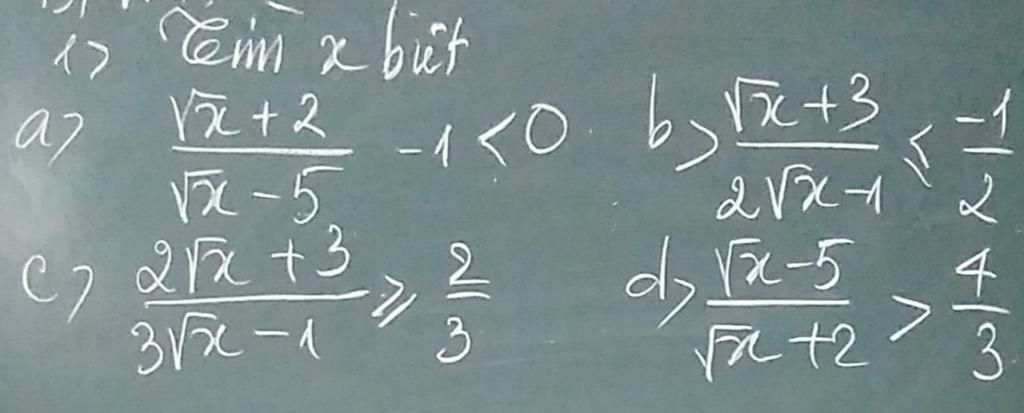 1> Tìm x biết
a> (√x + 2)/(√x - 5) - 1 < 0 b> (√x + 3)/(2√x - 1) ≤ -1/2
c> (2√x + 3)/(3√x - 1) ≥ 2/3 d> (√x - 5)/(√x + 2) > 4/3